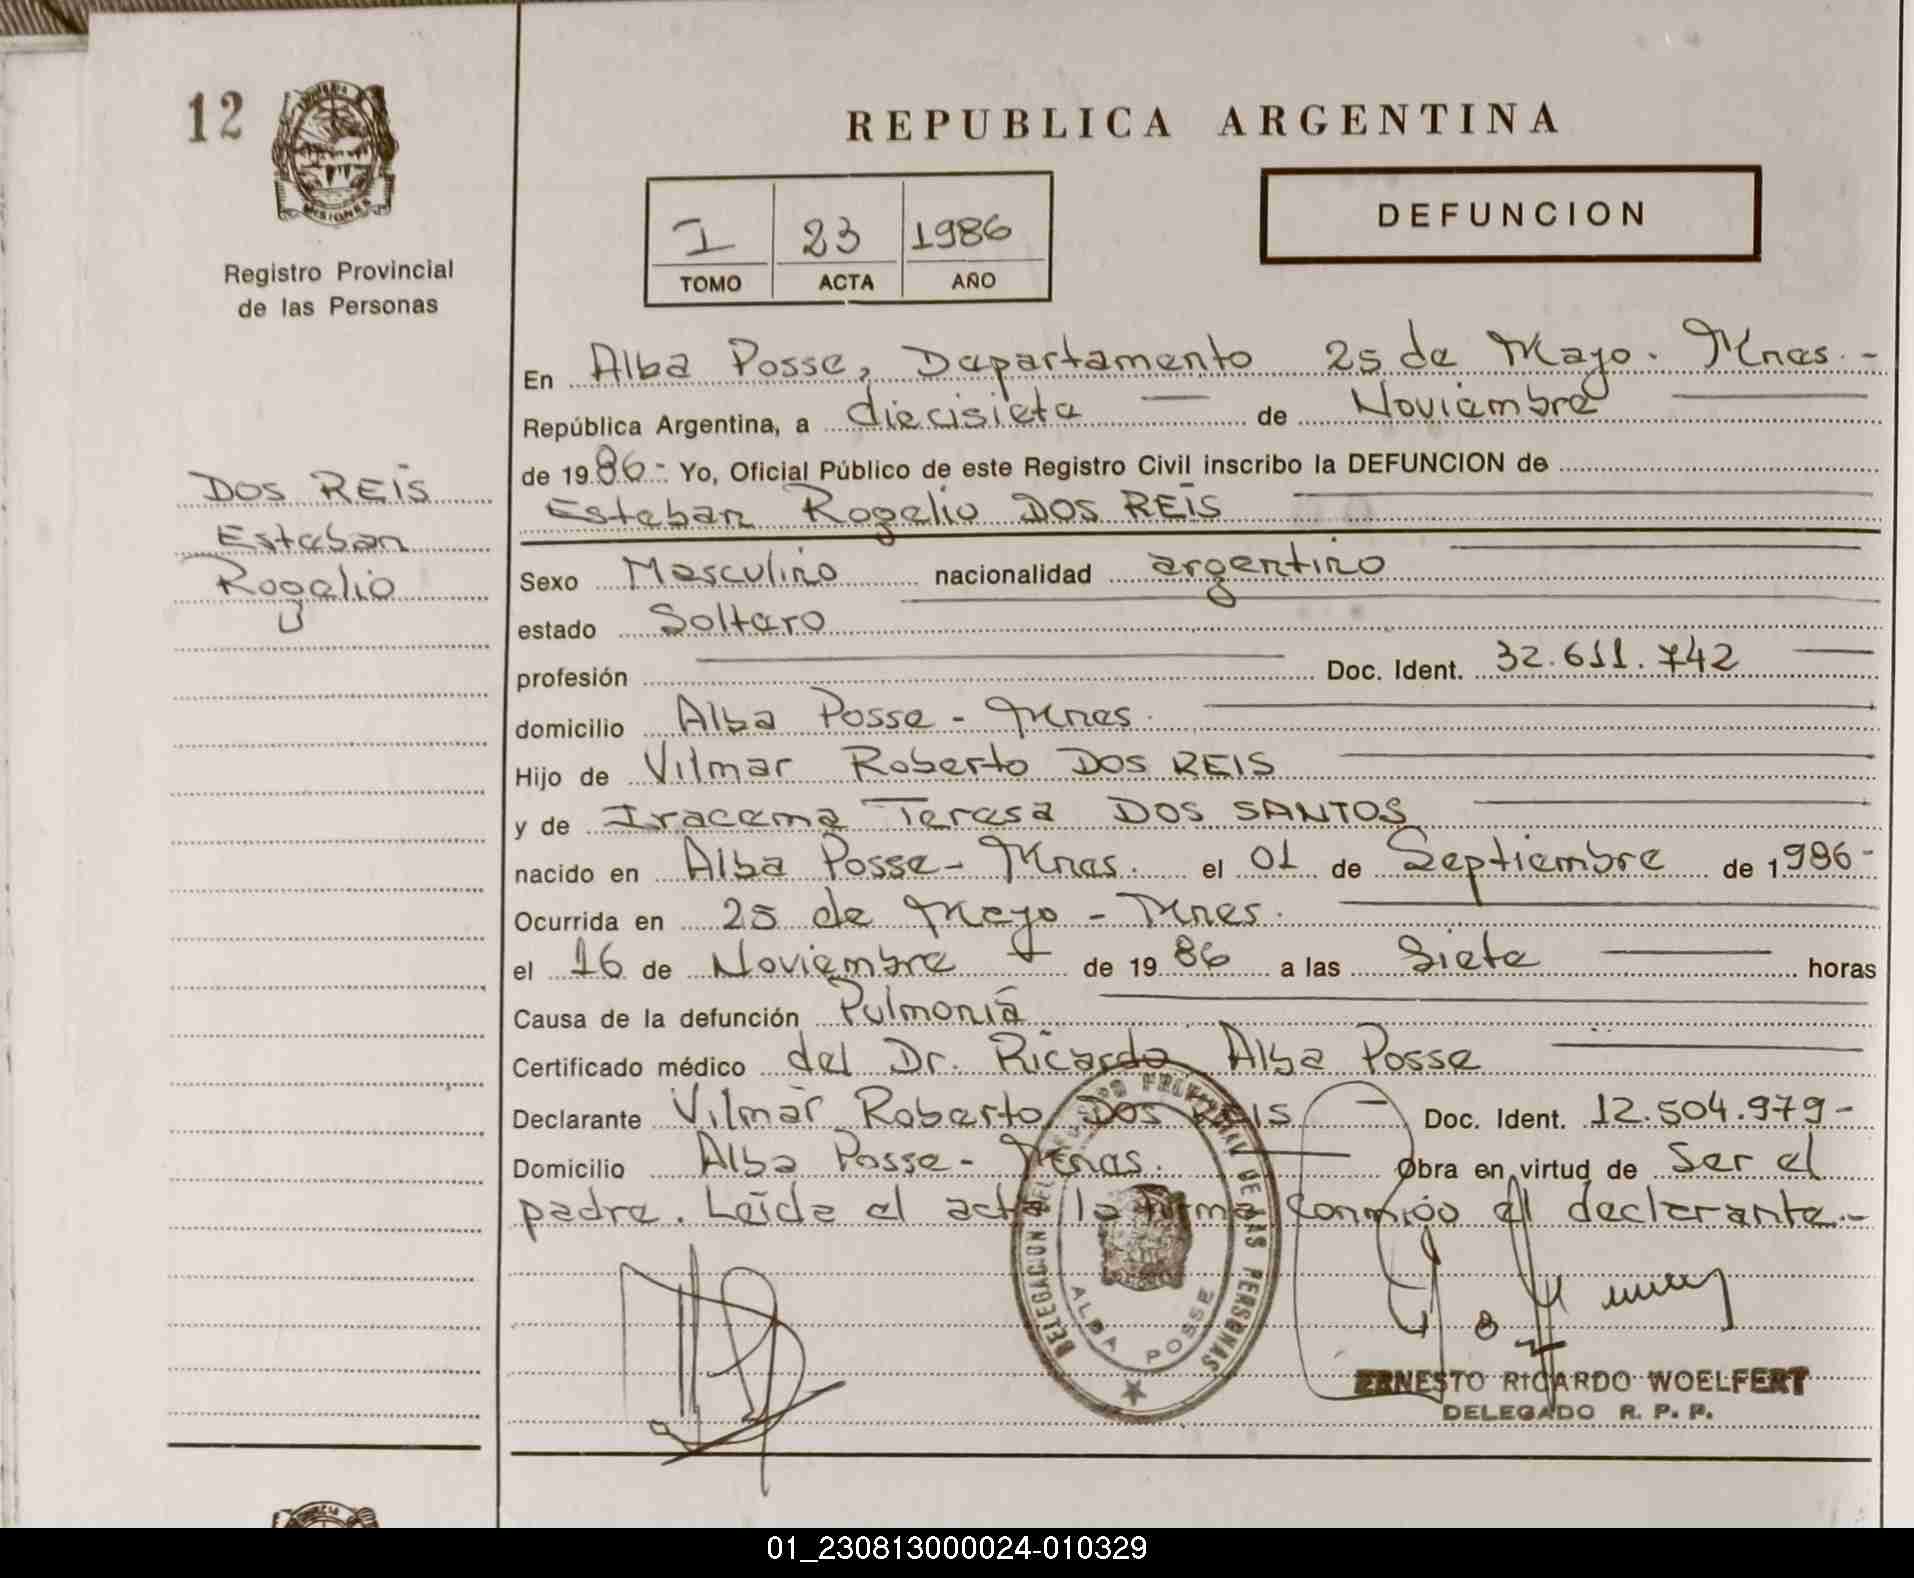 12
MISIONES
Registro Provincial
de las Personas
DOS REIS
Esteban
Rogelio
REPUBLICA ARGENTINA
I 23 1986
TOMO ACTA AÑO
DEFUNCION
En Alba Posse, Departamento 25 de Mayo. Mnes.-
República Argentina, a diecisiete de Noviembre
de 1986- Yo, Oficial Público de este Registro Civil inscribo la DEFUNCION de
Esteban Rogelio DOS REIS
Sexo Masculino nacionalidad argentino
estado Soltero
profesión Doc. Ident. 32.611.742
domicilio Alba Posse - Mnes.
Hijo de Vilmar Roberto DOS REIS
y de Iracema Teresa DOS SANTOS
nacido en Alba Posse- Mnes. el 01 de Septiembre de 1986-
Ocurrida en 25 de Mayo - Mnes.
el 16 de Noviembre de 1986 a las Siete horas
Causa de la defunción Pulmonía
Certificado médico del Dr. Ricardo Alba Posse
Declarante Vilmar Roberto DOS REIS - Doc. Ident. 12.504.979-
Domicilio Alba Posse- Mnes. Obra en virtud de Ser el
padre. Leída el acta la firma conmigo el declarante.-
DELEGACION DEL REGISTRO PROVINCIAL DE LAS PERSONAS
ALBA POSSE
ERNESTO RICARDO WOELFERT
DELEGADO R. P. P.
01_230813000024-010329